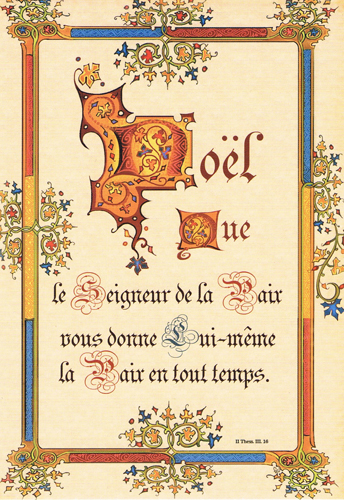 Noël
Que
le Seigneur de la Paix
vous donne Lui-même
la Paix en tout temps.
II Them. III, 16